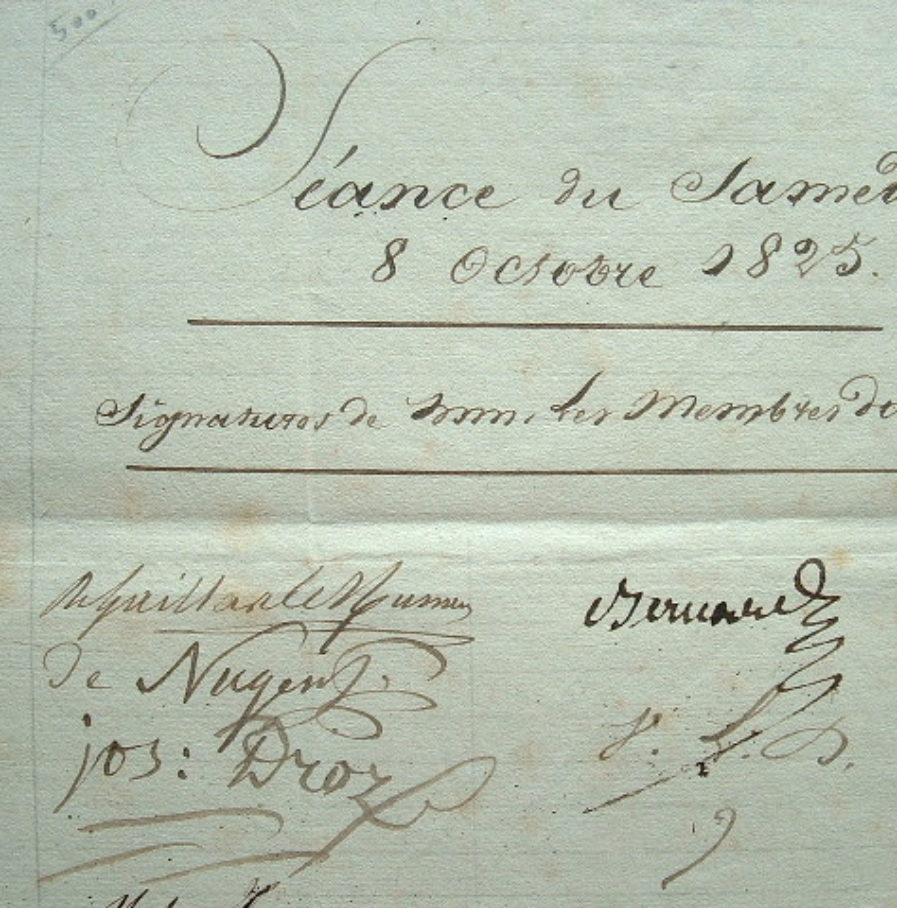 500
Séance du Samed
8 Octobre 1825.
Signatures de MM. les Membres de
de Nugent.
Bernard
jos: Droz